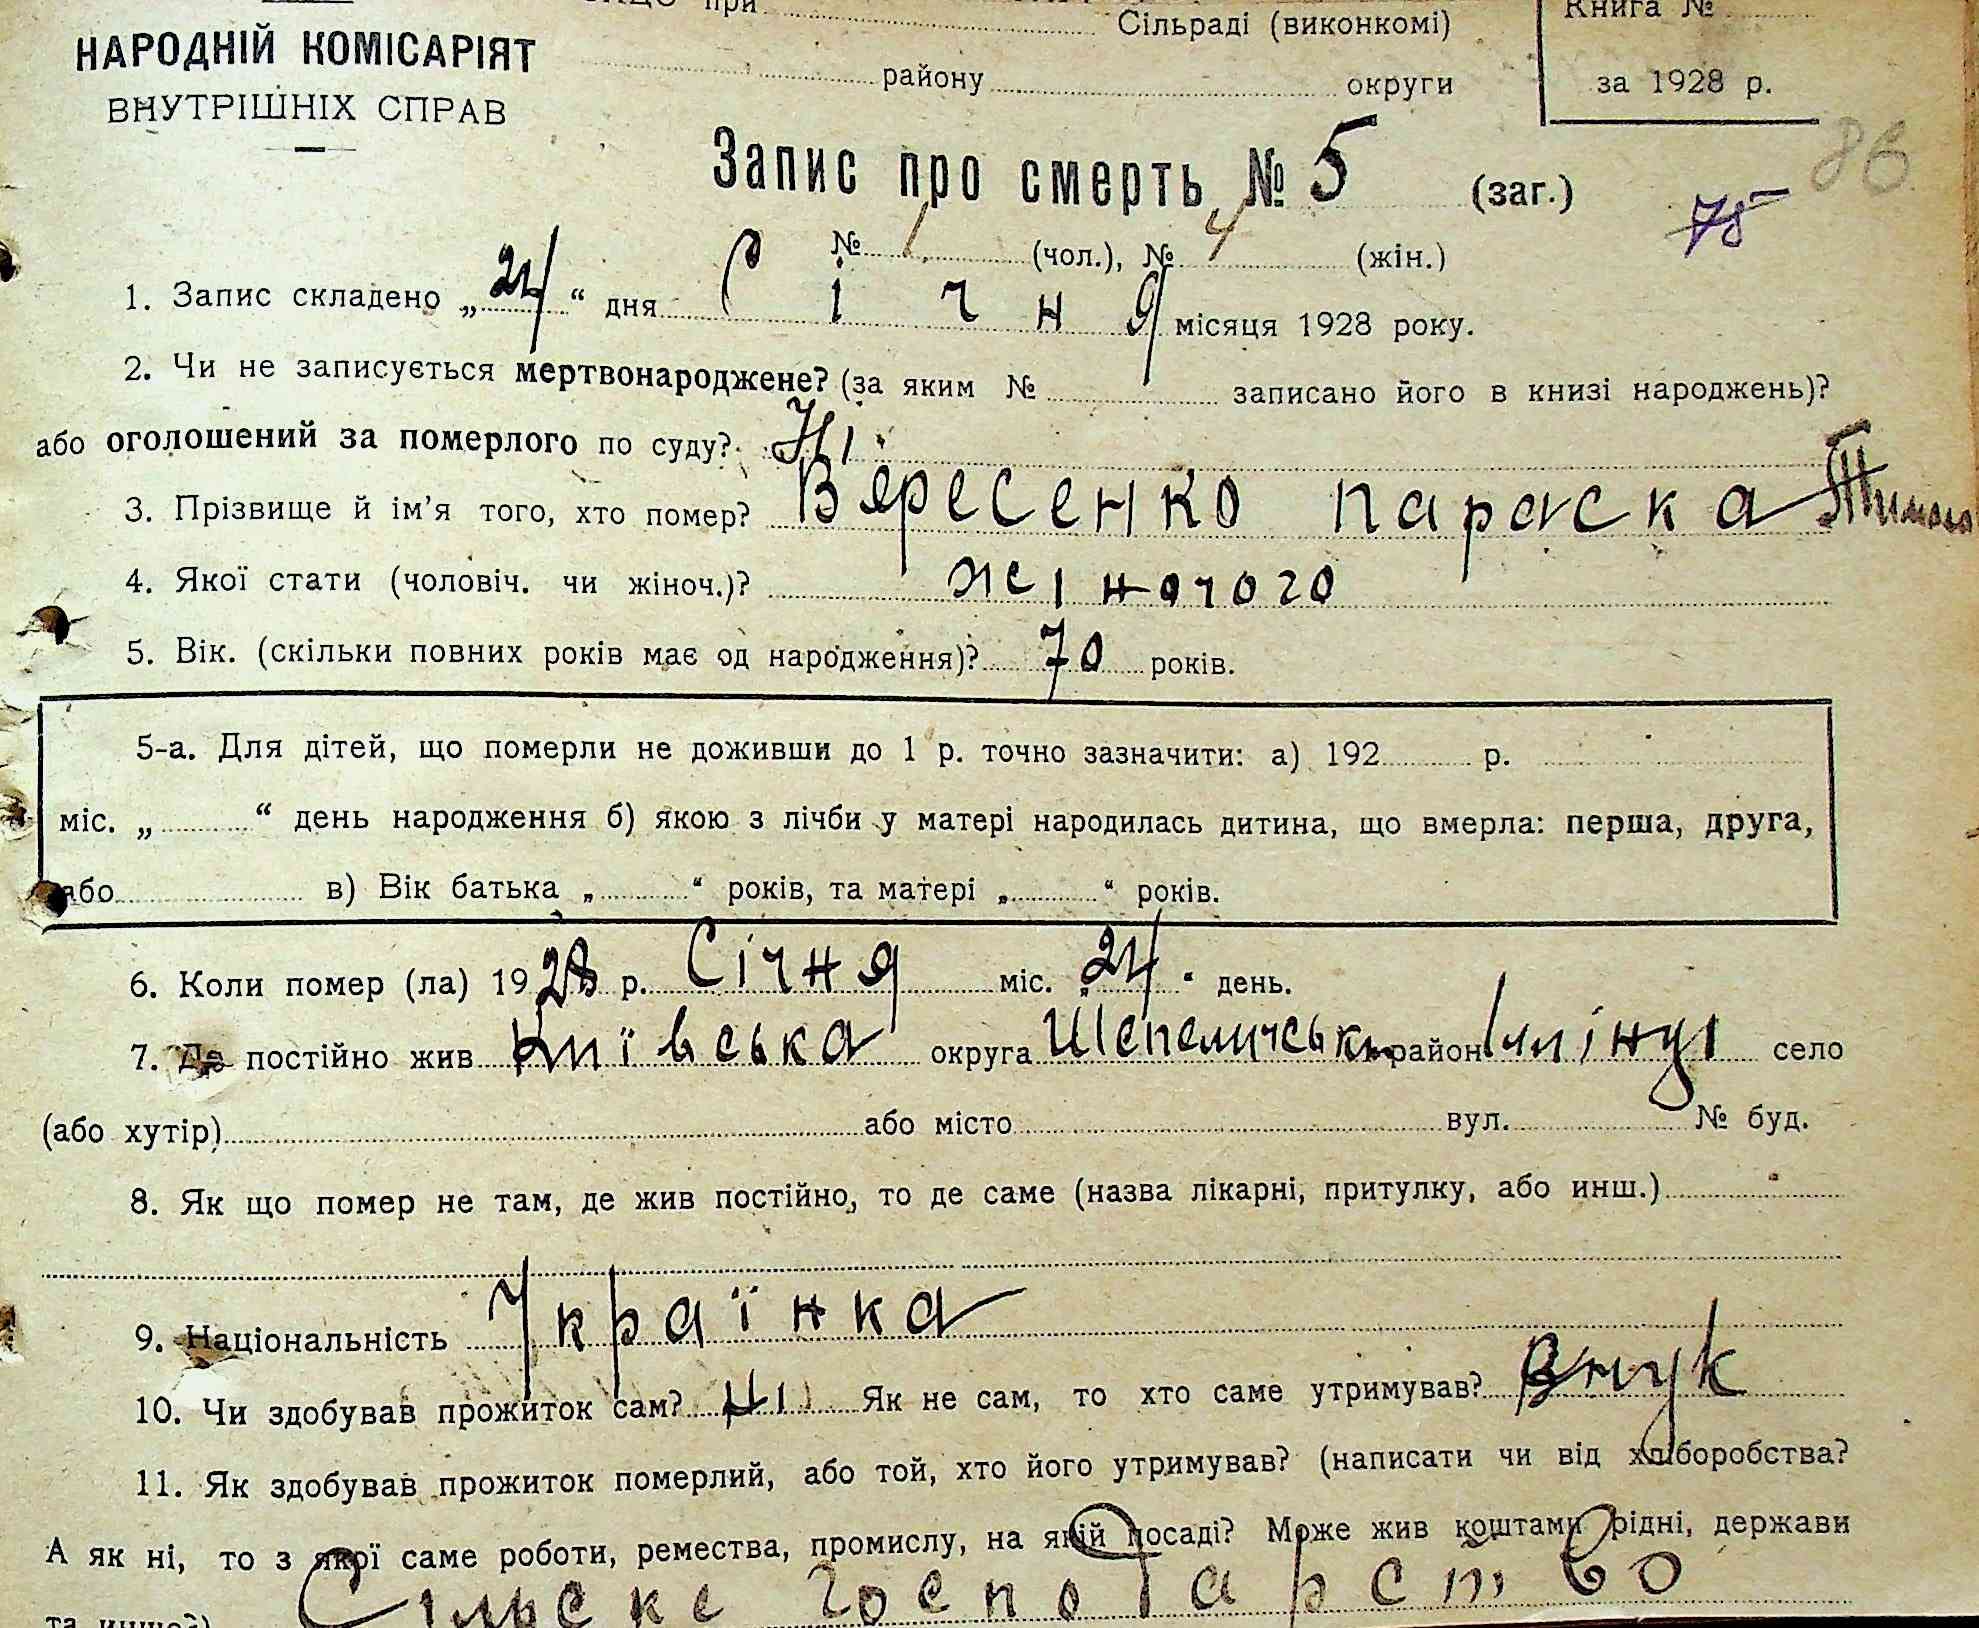 при Сільраді (виконкомі)
Книга №
НАРОДНІЙ КОМІСАРІЯТ
ВНУТРІШНІХ СПРАВ
району округи
за 1928 р.
Запис про смерть № 5 (заг.)
86
75
№ 1 (чол.), № 4 (жін.)
1. Запис складено „24“ дня Січня місяця 1928 року.
2. Чи не записується мертвонароджене? (за яким № записано його в книзі народжень)?
або оголошений за померлого по суду? Ні.
3. Прізвище й ім'я того, хто помер? Вересенко Параска
4. Якої стати (чоловіч. чи жіноч.)? жіночого
5. Вік. (скільки повних років має од народження)? 70 років.
5-а. Для дітей, що померли не доживши до 1 р. точно зазначити: а) 192 р.
міс. „ “ день народження б) якою з лічби у матері народилась дитина, що вмерла: перша, друга,
або в) Вік батька „ “ років, та матері „ “ років.
6. Коли помер (ла) 1928 р. Січня міс. „24“ день.
7. Де постійно жив Київська округа Шепеличськ район Іллінці село
(або хутір) або місто вул. № буд.
8. Як що помер не там, де жив постійно, то де саме (назва лікарні, притулку, або инш.)
9. Національність Українка
10. Чи здобував прожиток сам? Ні Як не сам, то хто саме утримував? Внук
11. Як здобував прожиток померлий, або той, хто його утримував? (написати чи від хліборобства?
А як ні, то з якої саме роботи, ремества, промислу, на якій посаді? Може жив коштами рідні, держави
та инше?) Сільске господарство